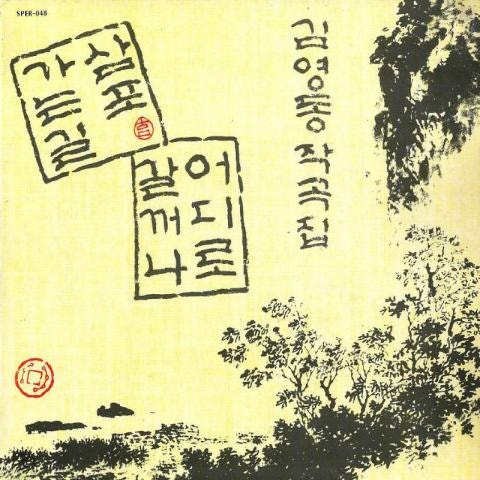 SPER-048
김영동 작곡집
삼포
가는길
어디로
갈꺼나